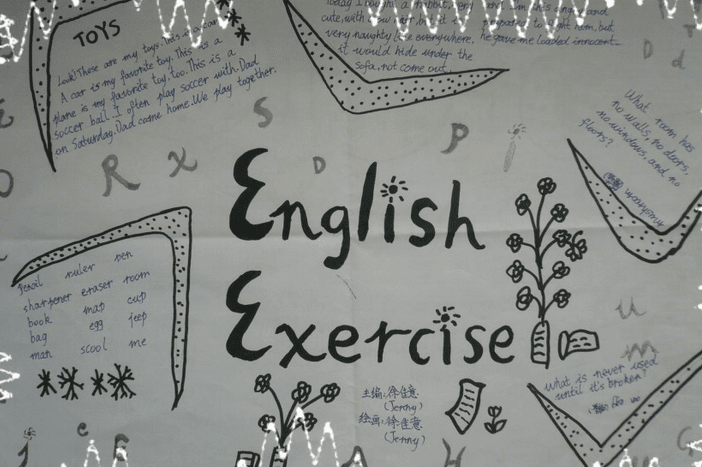 TOYS
Look! These are my toys. This is a car.
A car is my favorite toy. This is a
plane is my favorite toy, too. This is a
soccer ball. I often play soccer with Dad
on Saturday. Dad came home. We play together.
Today I bought a rabbit, very
cute, with
very naughty like everywhere.
it would hide under the
sofa, not come out.
but he gave me loaded innocent
What room has
no walls, no doors,
no windows, and no
floors?
English
Exercise
pencil ruler pen
sharpener eraser room
book map cup
bag egg jeep
man scool me
what is never used
until it's broken?
主编:徐佳意
(Jenny)
绘画:徐佳意
(Jenny)
R x S D P
D d
u
m